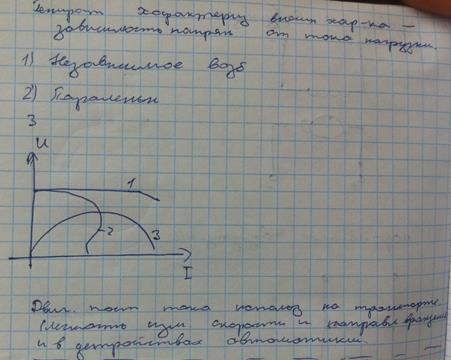 характериз внешн хар-ка —
зависимость напряж от тока нагрузки.
1) Независимое возб
2) Паралельн
3
U
1
2
3
I
Двиг. пост тока использ на транспорте
изм. скорости и направл вращения
и в устройствах автоматики